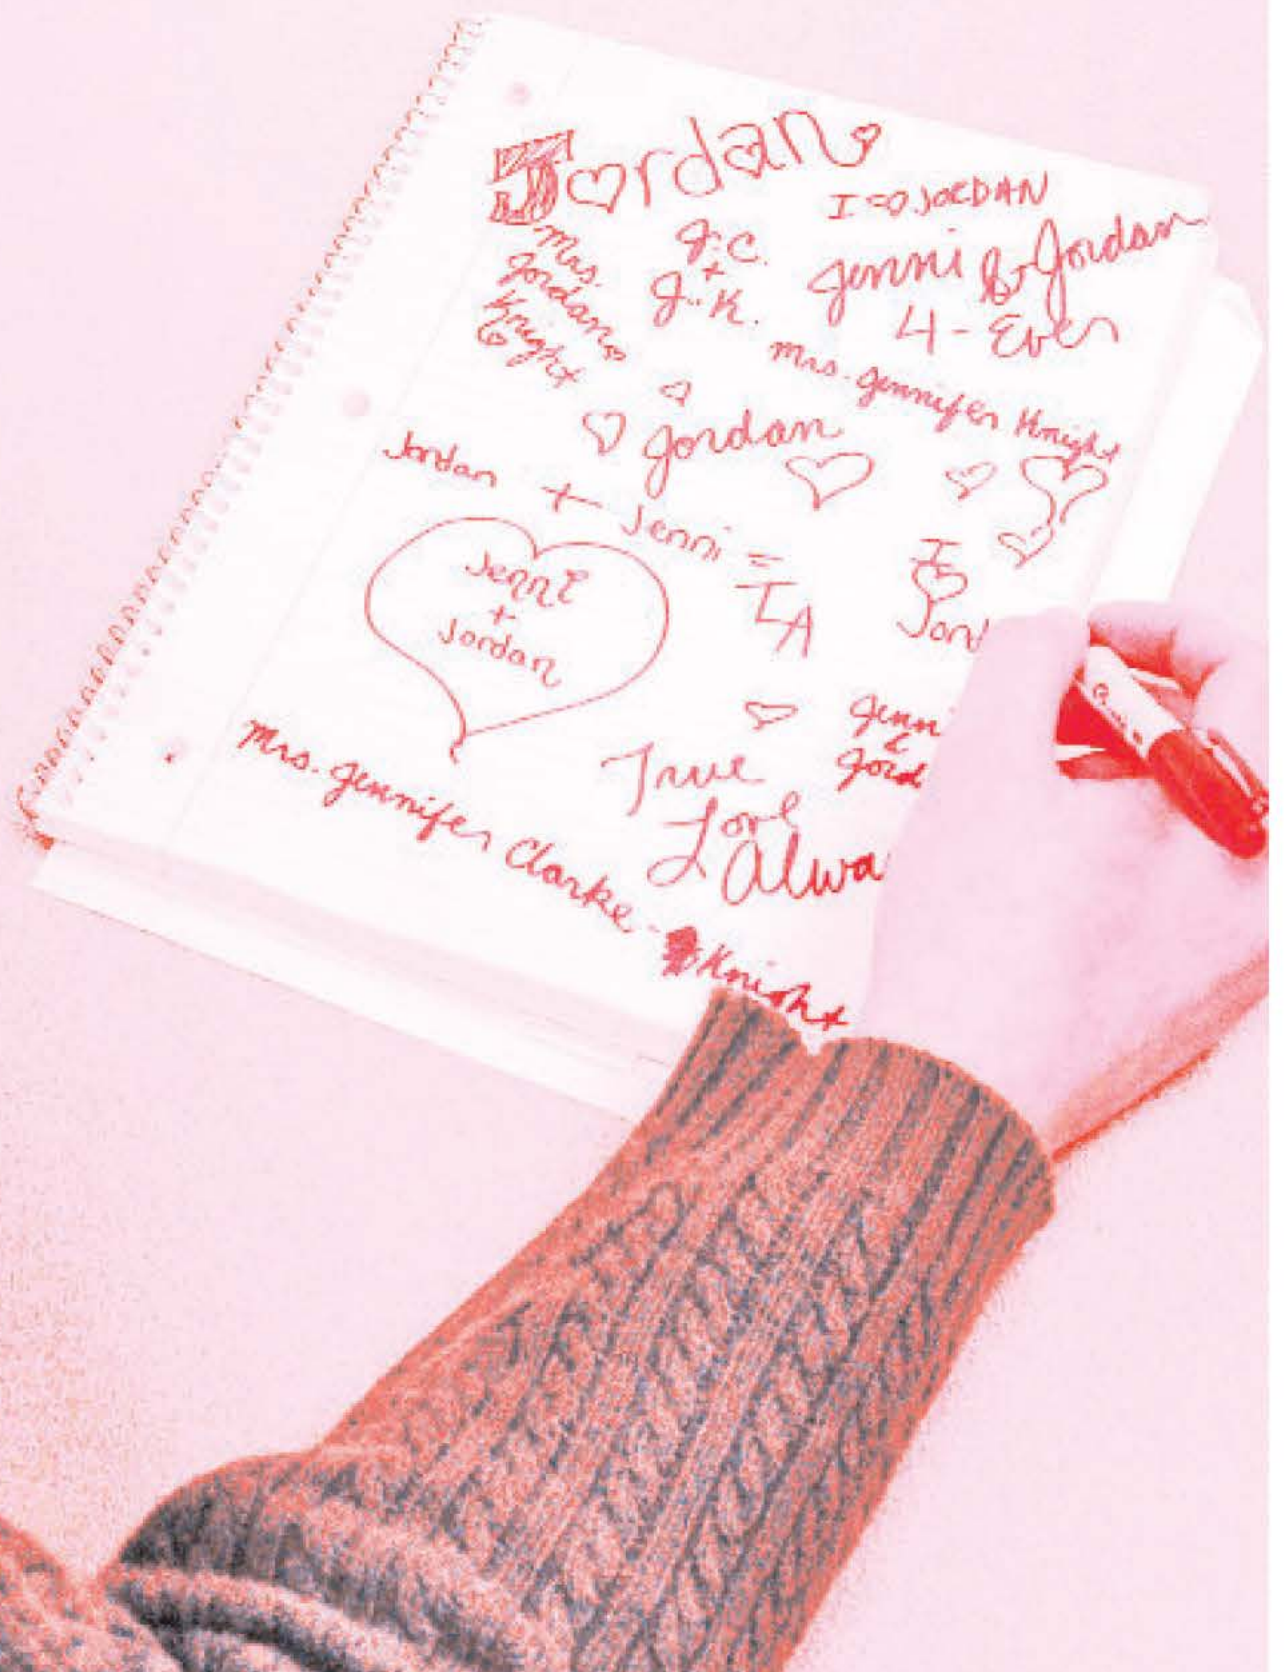 Jordan
I ♡ JORDAN
Mrs.
Jordan
Knight
J.C.
+
J.K.
Jenni & Jordan
4-Ever
Mrs. Jennifer Knight
Jordan
Jordan + Jenni =
IA
Jenni
+
Jordan
I
♡
Jord
Jenn
&
Jord
True
Love
Alwa
Mrs. Jennifer Clarke-Knight